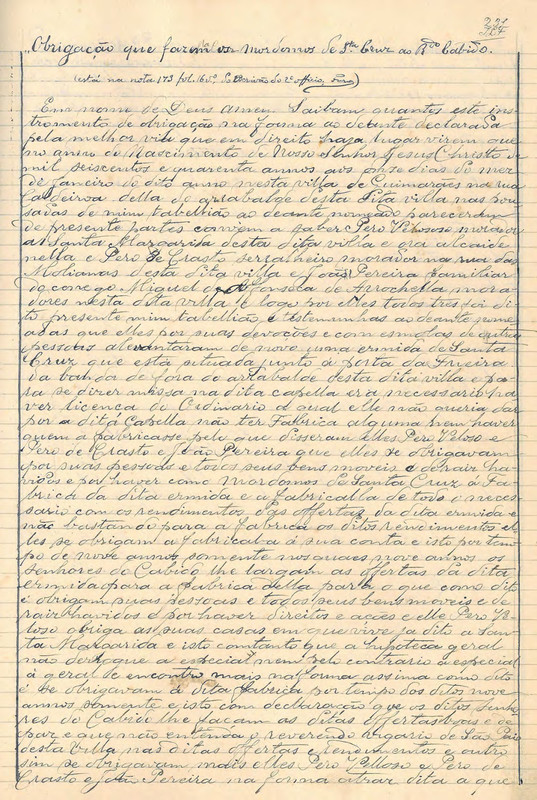 Obrigação que fazem os mordomos de Sta Cruz ao Rdo Cabido.
(está na nota 173 fol. 160 do Escrivão do 2º officio,
Em nome de Deus Amen Saibam quantos este ins-
tromento de obrigação na forma ao deante declarada
pela melhor via que em direito haja lugar virem que
no anno do Nascimento de Nosso Senhor Jesus Christo de
mil seiscentos e quarenta annos aos onse dias do mez
de Janeiro do dito anno nesta villa de Guimarães na rua
Caldeiroa della do arabalde desta dita villa nas pou-
sadas de mim tabellião ao deante nomeado pareceram
de presente partes convem a saber Pero Velloso morador
a Santa Margarida desta dita villa e ora alcaide
nella e Pero de Crasto serçalheiro morador na rua das
Molianas desta dita villa e João Pereira familiar
do conego Miguel da Fonseca de Arrochella mora-
dores nesta dita villa e logo por elles todos tres foi di-
to presente mim tabellião e testemunhas ao deante nome-
adas que elles por suas devoções e com esmolas de outras
pessoas alevantaram de novo uma ermida de Santa
Cruz que está situada junto á porta da Freiria
da banda de fora do arabalde desta dita villa e pa-
ra se dizer missa na dita capella era necessario ha-
ver licença do Ordinario a qual elle não queria dar
por a dita Capella não ter Fabrica alguma nem haver
quem a fabricasse pelo que disseram elles Pero Velloso e
Pero de Crasto e João Pereira que elles se obrigavam
por suas pessoas e todos seus bens moveis e de raiz ha-
vidos e por haver como Mordomos de Santa Cruz á Fa-
brica da dita ermida e a fabricalla de todo o neces-
sario com os rendimentos das offertas da dita ermida e
não bastando para a fabrica os ditos rendimentos el-
les se obrigam a fabrical-a á sua conta e isto por tem-
po de nove annos somente nos quaes nove annos os
Senhores do Cabido lhe largam as offertas da dita
ermida para a fabrica della para o que como dito
é obrigam suas pessoas e todos seus bens moveis e de
raiz havidos e por haver direitos e ações e elle Pero Ve-
loso obriga as suas casas em que vive já dito a San-
ta Margarida e isto comtanto que a hypoteca geral
não derogue a especial nem pelo contrario a especial
á geral se encontro mais na forma assima como dito
é se obrigavam á dita fabrica por tempo dos ditos nove
annos somente e isto com declaração que os ditos Senho-
res do Cabido lhe façam as ditas offertas boas e de
paz e que não entenda o reverendo vigario de São Paio
desta Villa nas ditas offertas e rendimentos e outro
sim se obrigavam mais elles Pero Velloso e Pero de
Crasto e João Pereira na forma atraz dita a que